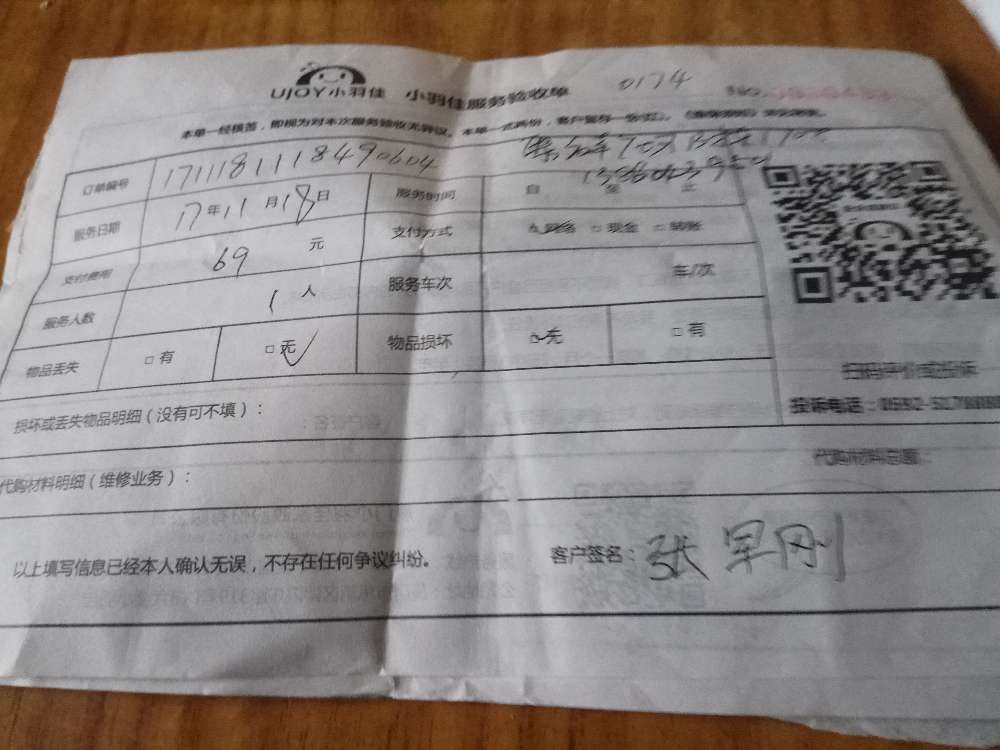 UJOY小羽佳 小羽佳服务验收单 0174
本单一经核签，即视为对本次服务验收无异议。本单一式两份，客户留存一份
订单编号 1711181118490604
服务时间 自 至 止
服务日期 17年11月18日 支付方式 网络 □现金 □转账
支付费用 69 元 服务车次 车/次
服务人数 1人
物品丢失 □有 □无 物品损坏 □无 □有
扫码评价或投诉
损坏或丢失物品明细（没有可不填）：
投诉电话：0592-
代购材料明细（维修业务）： 代购材料总额：
以上填写信息已经本人确认无误，不存在任何争议纠纷。 客户签名：张军刚